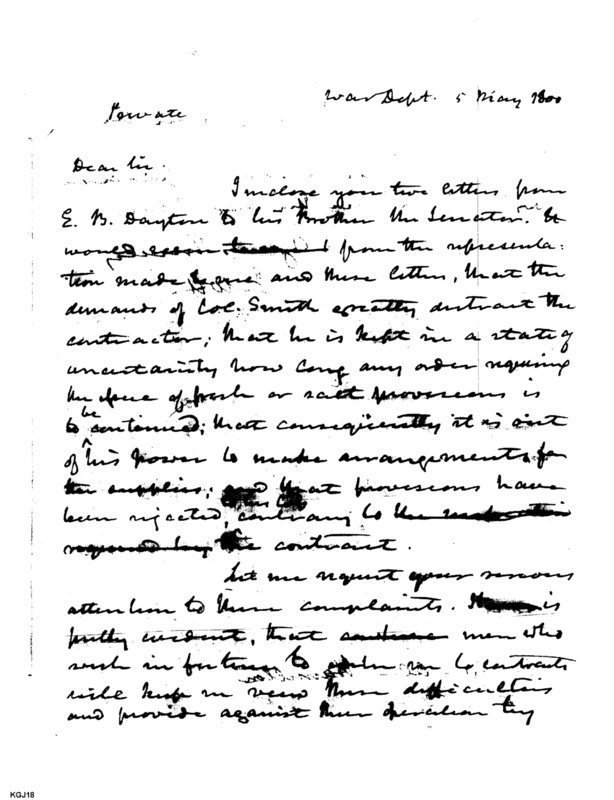 War Dept. 5 May 1800
Private
Dear Sir.
I inclose you two letters from
E. B. Dayton to his Brother the Senator. It
would seem from the representa-
tion made to me and these letters, that the
demands of Col. Smith greatly distract the
contractor; that he is kept in a state of
uncertainty how long any order requiring
the issue of fresh or salt provisions is
to be continued; that consequently it is out
of his power to make arrangements for
the supplies; and that provisions have
been rejected, contrary to the
required by the contract.
Let me request your serious
attention to these complaints. It is
pretty evident, that men who
wish in future to enter into contracts
will keep in view these difficulties
and provide against their operation by
KGJ18